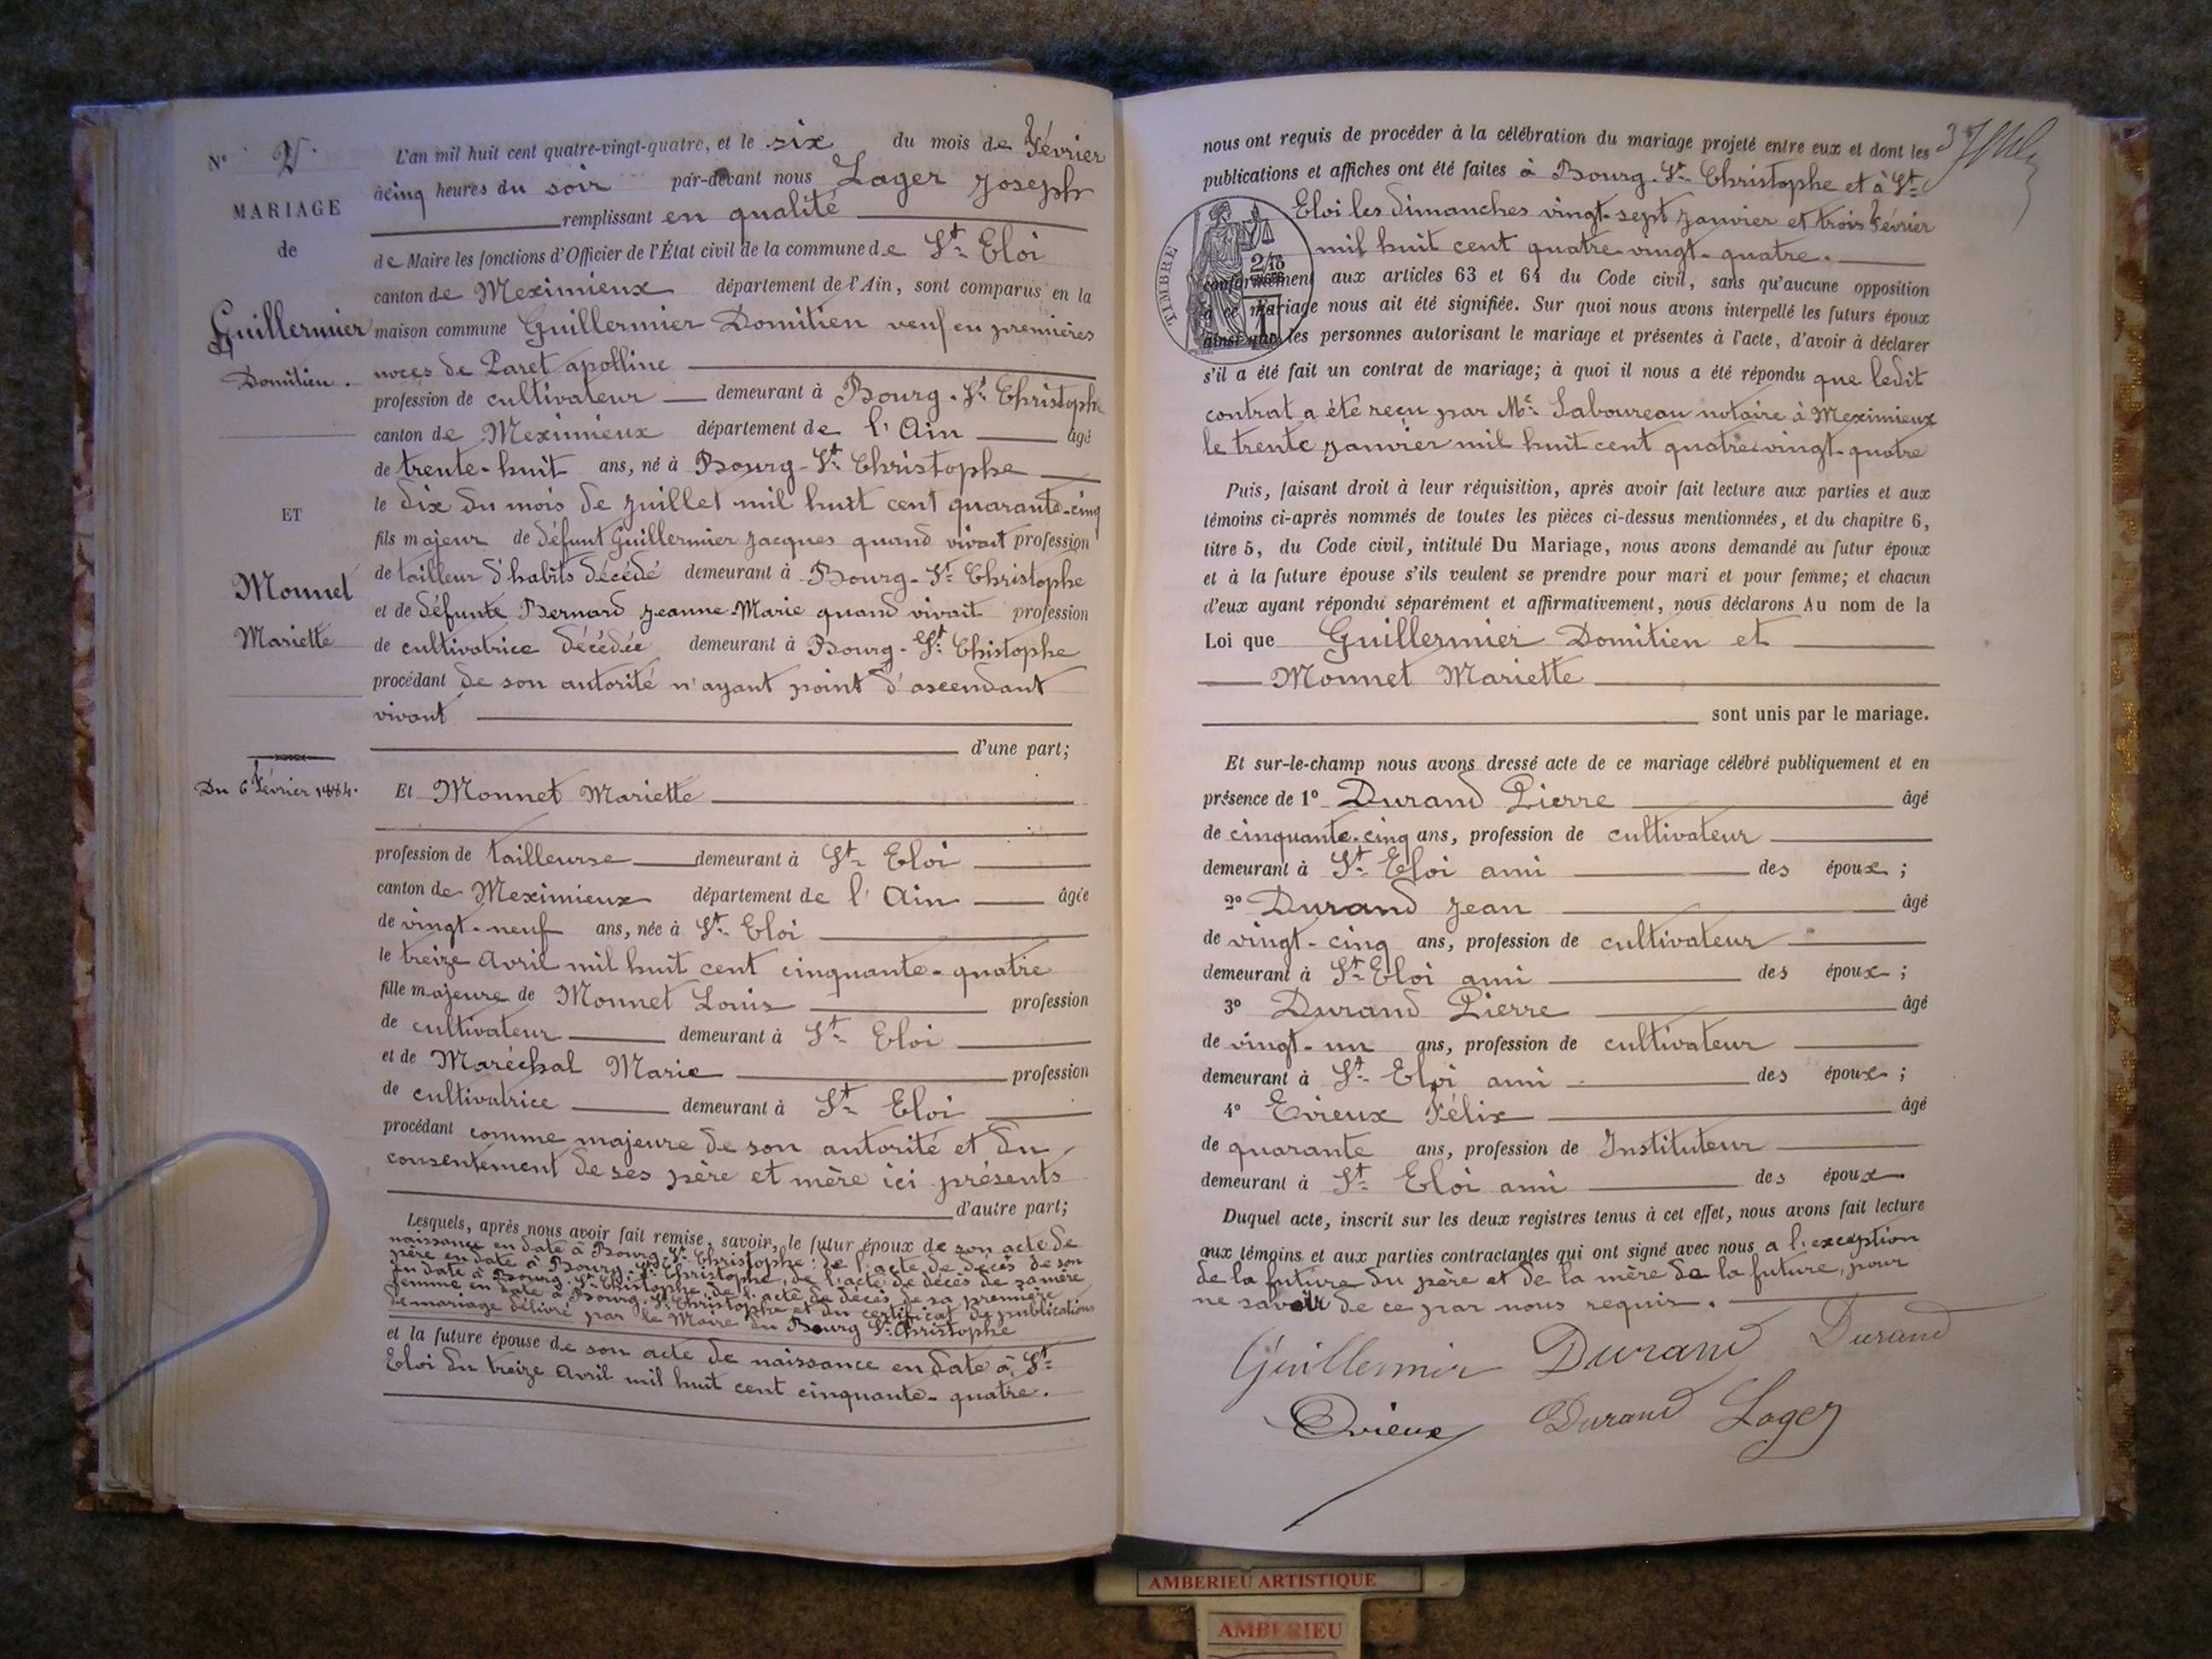 N° 2.
MARIAGE
de
Guillermier
Domitien.
ET
Monnet
Mariette
Du 6 février 1884.
L'an mil huit cent quatre-vingt-quatre, et le six du mois de février
à cinq heures du soir par-devant nous Lager Joseph
remplissant en qualité
de Maire les fonctions d'Officier de l'État civil de la commune de St Eloi
canton de Meximieux département de l'Ain, sont comparus en la
maison commune Guillermier Domitien veuf en premières
noces de Paret apolline
profession de cultivateur demeurant à Bourg-St Christophe
canton de Meximieux département de l'Ain âgé
de trente-huit ans, né à Bourg-St Christophe
le dix du mois de juillet mil huit cent quarante-cinq
fils majeur de défunt Guillermier Jacques quand vivait profession
de tailleur d'habits décédé demeurant à Bourg-St Christophe
et de défunte Bernard Jeanne-Marie quand vivait profession
de cultivatrice décédée demeurant à Bourg-St Chistophe
procédant de son autorité n'ayant point d'ascendant
vivant
d'une part;
Et Monnet Mariette
profession de tailleurse demeurant à St Eloi
canton de Meximieux département de l'Ain âgée
de vingt-neuf ans, née à St Eloi
le treize Avril mil huit cent cinquante-quatre
fille majeure de Monnet Louis profession
de cultivateur demeurant à St Eloi
et de Maréchal Marie profession
de cultivatrice demeurant à St Eloi
procédant comme majeure de son autorité et du
consentement de ses père et mère ici présents
d'autre part;
Lesquels, après nous avoir fait remise, savoir, le futur époux de son acte de
naissance en date à Bourg-St Christophe: de l'acte de décès de son
père en date à Bourg-St Christophe, de l'acte de décès de sa mère
en date à Bourg-St Christophe de l'acte de décès de sa première
femme en date à Bourg-St Christophe et du certificat de publications
de mariage délivré par le Maire du Bourg St Christophe
et la future épouse de son acte de naissance en date à St
Eloi du treize Avril mil huit cent cinquante-quatre.
3
nous ont requis de procéder à la célébration du mariage projeté entre eux et dont les
publications et affiches ont été faites à Bourg-St Christophe et à St
Eloi les dimanches vingt-sept janvier et trois février
mil huit cent quatre-vingt-quatre.
TIMBRE
2/10
conformément aux articles 63 et 64 du Code civil, sans qu'aucune opposition
à ce mariage nous ait été signifiée. Sur quoi nous avons interpellé les futurs époux
ainsi que les personnes autorisant le mariage et présentes à l'acte, d'avoir à déclarer
s'il a été fait un contrat de mariage; à quoi il nous a été répondu que ledit
contrat a été reçu par Me Laboureau notaire à Meximieux
le trente janvier mil huit cent quatre-vingt-quatre
Puis, faisant droit à leur réquisition, après avoir fait lecture aux parties et aux
témoins ci-après nommés de toutes les pièces ci-dessus mentionnées, et du chapitre 6,
titre 5, du Code civil, intitulé Du Mariage, nous avons demandé au futur époux
et à la future épouse s'ils veulent se prendre pour mari et pour femme; et chacun
d'eux ayant répondu séparément et affirmativement, nous déclarons Au nom de la
Loi que Guillermier Domitien et
Monnet Mariette
sont unis par le mariage.
Et sur-le-champ nous avons dressé acte de ce mariage célébré publiquement et en
présence de 1° Durand Pierre âgé
de cinquante-cinq ans, profession de cultivateur
demeurant à St Eloi ami des époux;
2° Durand Jean âgé
de vingt-cinq ans, profession de cultivateur
demeurant à St Eloi ami des époux;
3° Durand Pierre âgé
de vingt-un ans, profession de cultivateur
demeurant à St Eloi ami des époux;
4° Evieux Félix âgé
de quarante ans, profession de Instituteur
demeurant à St Eloi ami des époux.
Duquel acte, inscrit sur les deux registres tenus à cet effet, nous avons fait lecture
aux témoins et aux parties contractantes qui ont signé avec nous a l'exception
de la future du père et de la mère de la future, pour
ne savoir de ce par nous requis.
Guillermier Durand Durand
Evieux Durand Lager
AMBERIEU ARTISTIQUE
AMBERIEU